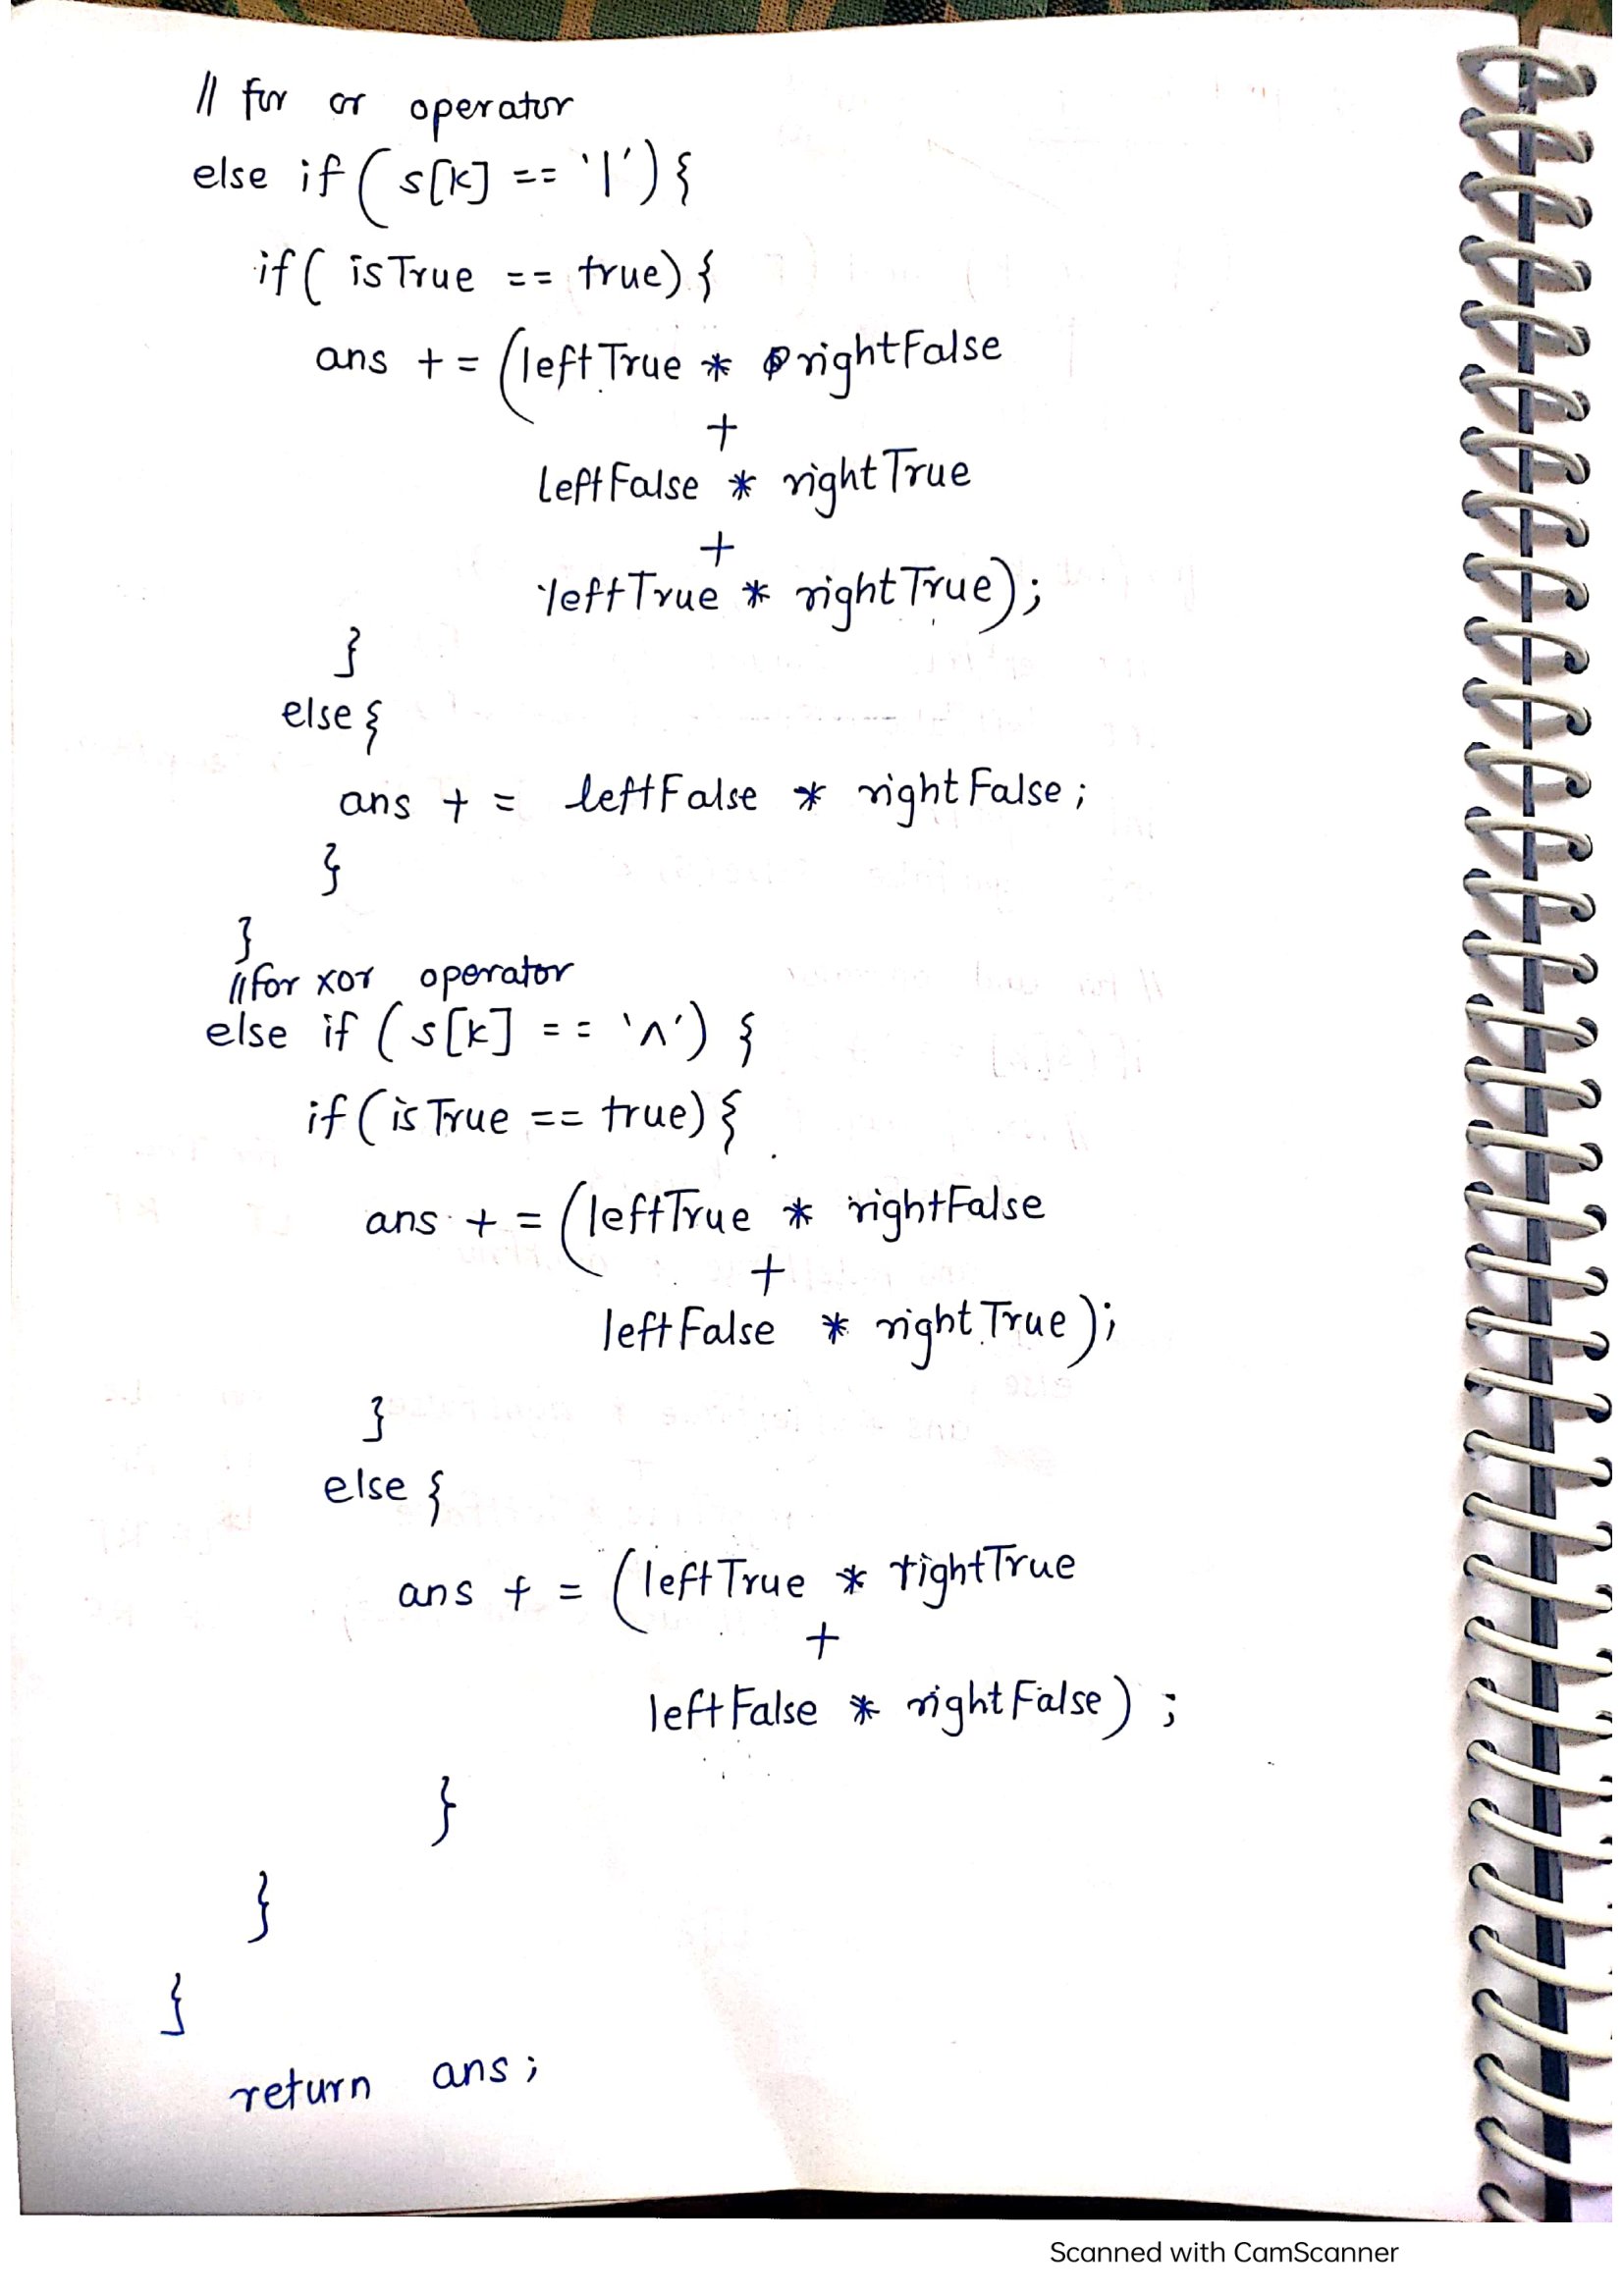 // for or operator
else if ( s[k] == '|' ) {
if ( isTrue == true) {
ans += (leftTrue * rightFalse
+
leftFalse * rightTrue
+
leftTrue * rightTrue);
}
else {
ans += leftFalse * rightFalse ;
}
}
// for xor operator
else if ( s[k] == '^' ) {
if ( isTrue == true) {
ans += (leftTrue * rightFalse
+
leftFalse * rightTrue );
}
else {
ans += (leftTrue * rightTrue
+
leftFalse * rightFalse) ;
}
}
}
return ans ;
Scanned with CamScanner